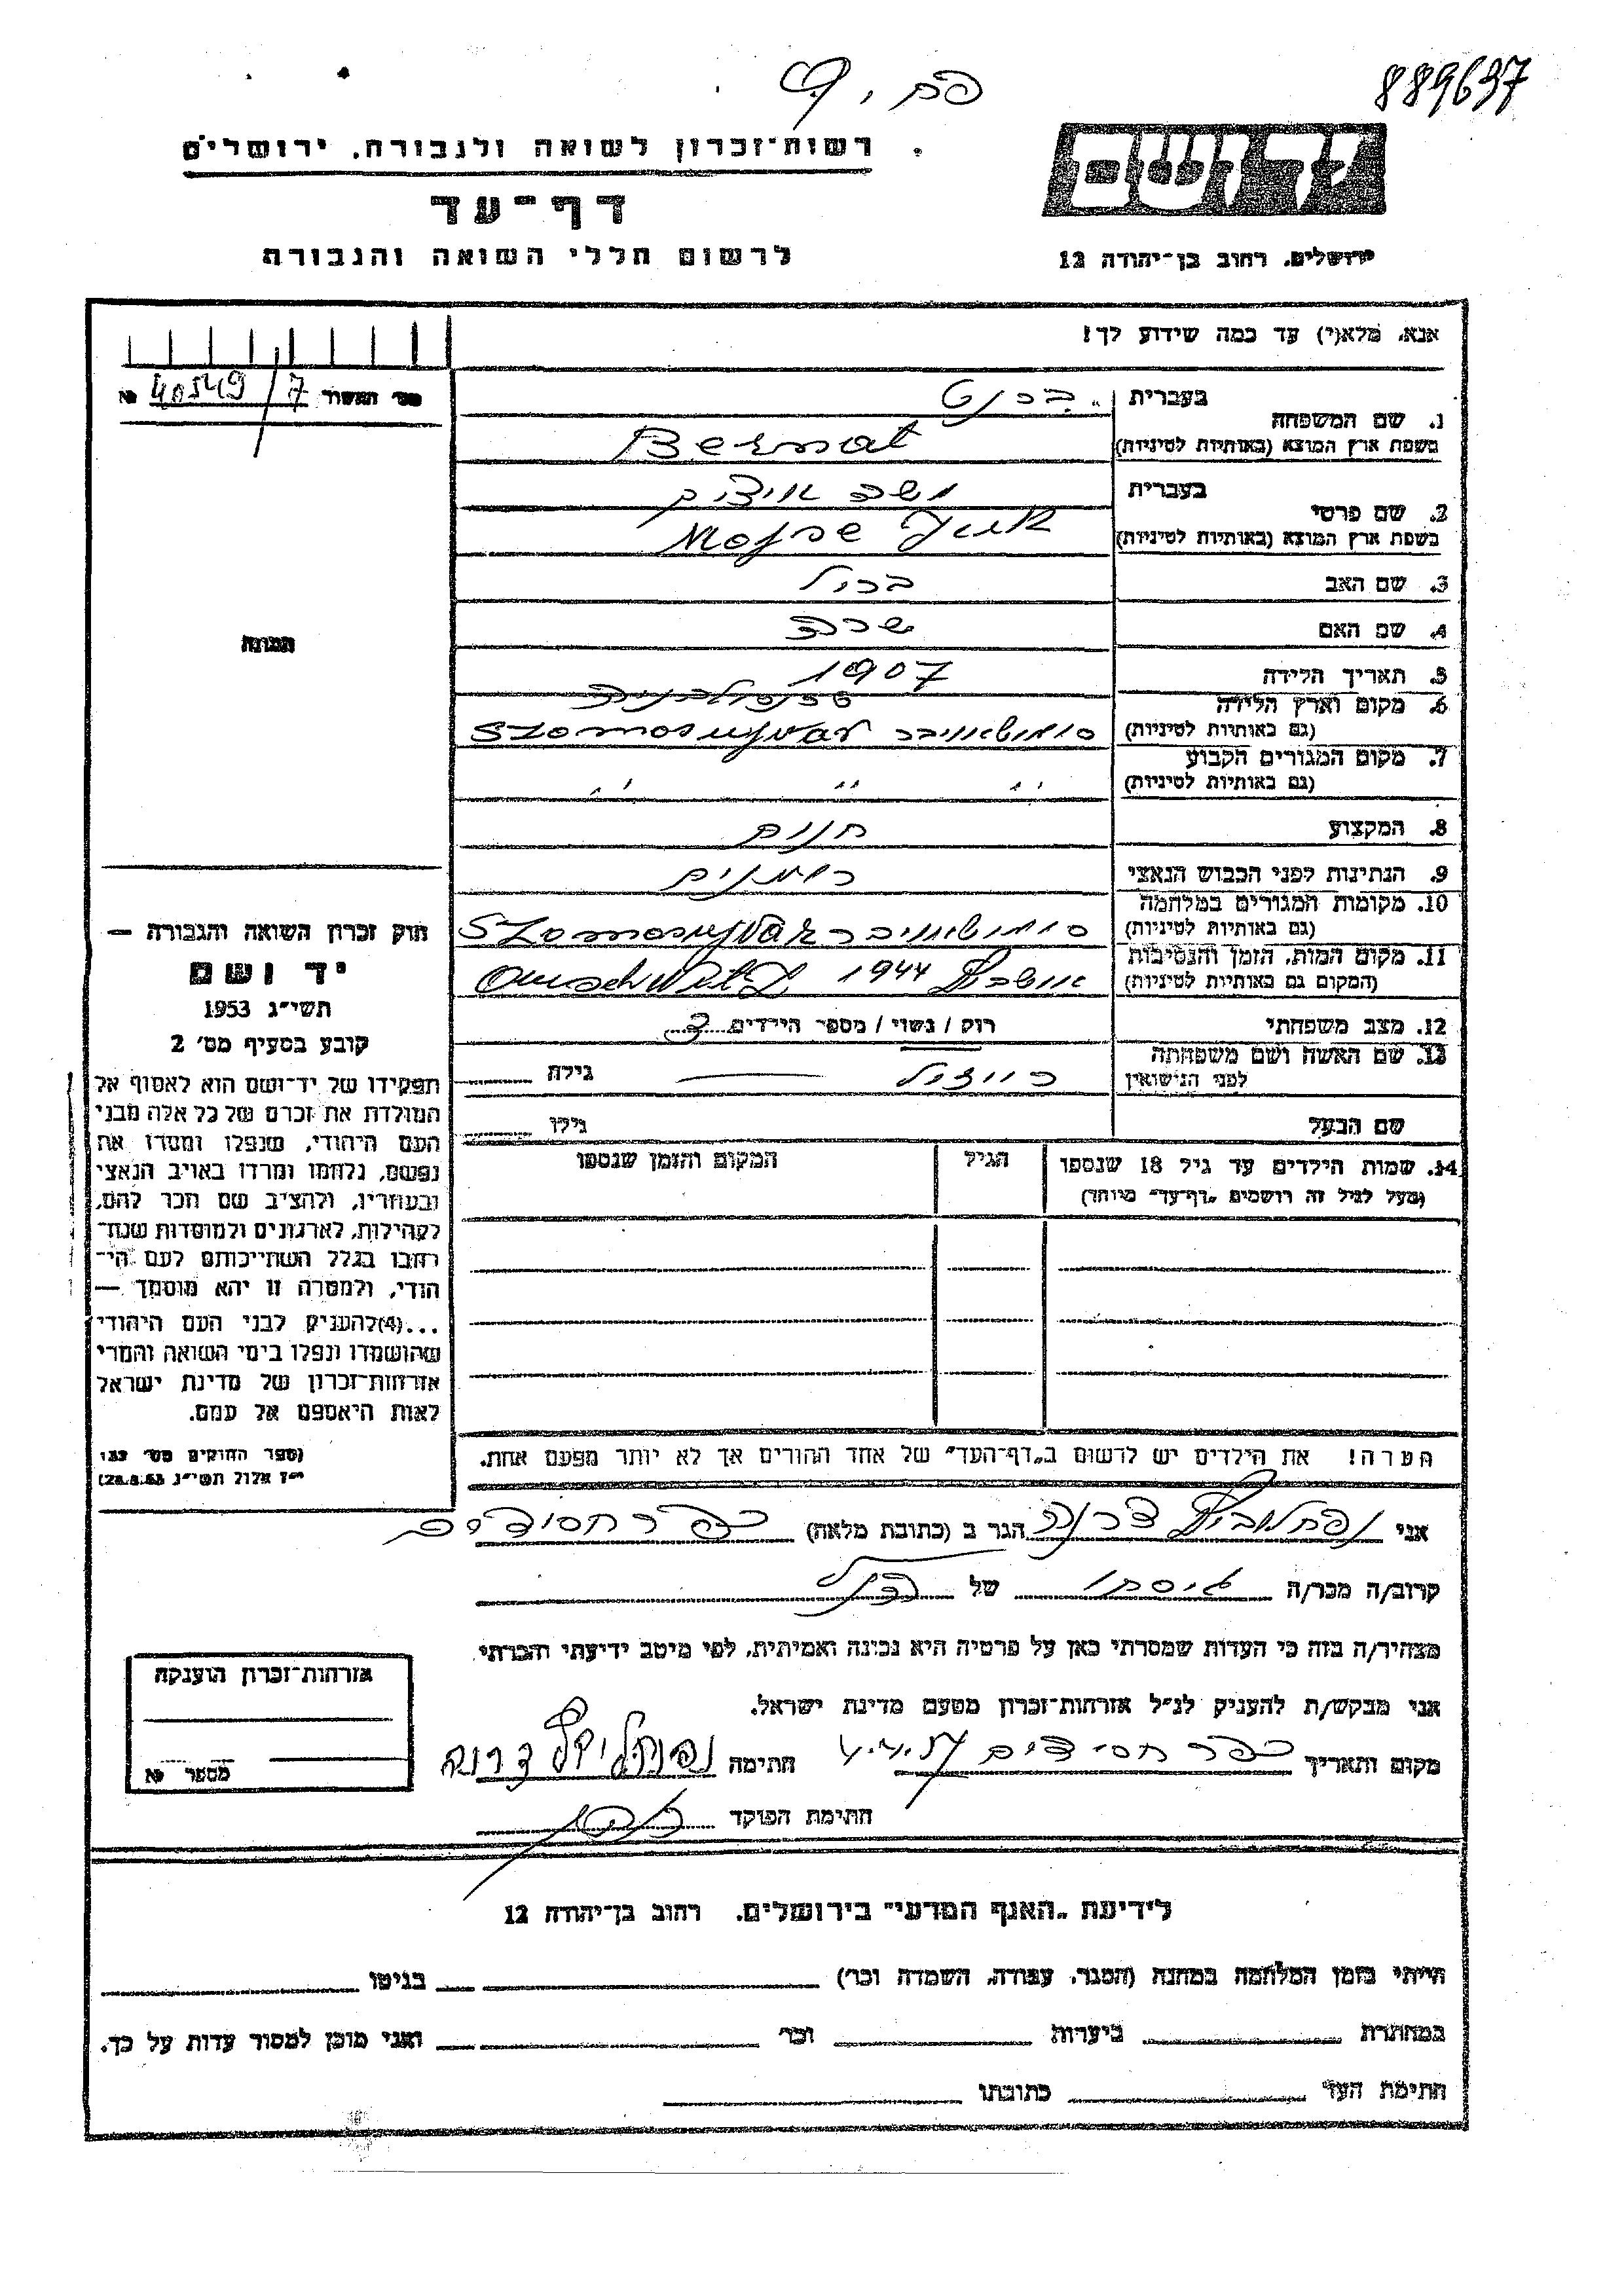 889637
רשות־זכרון לשואה ולגבורה, ירושלים
דף־עד
לרשום חללי השואה והגבורה
ירושלים, רחוב בן־יהודה 12
אנא, מלא(י) עד כמה שידוע לך!
מס' האשור 40549/7 №
1. שם המשפחה
בעברית ברנט
בשפת ארץ המוצא (באותיות לטיניות) Bernat
2. שם פרטי
בעברית משה איציק
בשפת ארץ המוצא (באותיות לטיניות)
3. שם האב
4. שם האם שרה
5. תאריך הלידה 1907
6. מקום וארץ הלידה טרנסילבניה
(גם באותיות לטיניות) סומושאויבר Szomosujvar
7. מקום המגורים הקבוע
(גם באותיות לטיניות) " " "
8. המקצוע
9. הנתינות לפני הכבוש הנאצי
10. מקומות המגורים במלחמה
(גם באותיות לטיניות) סומושאויבר Szomosujvar
11. מקום המות, הזמן והנסיבות
(המקום גם באותיות לטיניות) אושביץ 1944 Auschwitz
12. מצב משפחתי רוק / נשוי / מספר הילדים 3
13. שם האשה ושם משפחתה
לפני הנישואין רייזיל גילה
שם הבעל גילו
14. שמות הילדים עד גיל 18 שנספו הגיל המקום והזמן שנספו
(מעל לגיל זה רושמים „דף־עד" מיוחד)
הערה! את הילדים יש לרשום ב„דף־העד" של אחד ההורים אך לא יותר מפעם אחת.
תמונה
חוק זכרון השואה והגבורה —
יד ושם
תשי״ג 1953
קובע בסעיף מס׳ 2
תפקידו של יד־ושם הוא לאסוף אל
המולדת את זכרם של כל אלה מבני
העם היהודי, שנפלו ומסרו את
נפשם, נלחמו ומרדו באויב הנאצי
ובעוזריו, ולהציב שם וזכר להם,
לקהילות, לארגונים ולמוסדות שנח־
רבו בגלל השתייכותם לעם הי־
הודי, ולמטרה זו יהא מוסמך —
...(4)להעניק לבני העם היהודי
שהושמדו ונפלו בימי השואה והמרי
אזרחות־זכרון של מדינת ישראל
לאות היאספם אל עמם.
(ספר החוקים מס׳ 132
י״ז אלול תשי״ג 28.8.53)
אני נפתלוביץ דרורה הגר ב (כתובת מלאה) כפר חסידים
קרוב/ה מכר/ה של
מצהיר/ה בזה כי העדות שמסרתי כאן על פרטיה היא נכונה ואמיתית, לפי מיטב ידיעתי והכרתי.
אני מבקש/ת להעניק לנ״ל אזרחות־זכרון מטעם מדינת ישראל.
מקום ותאריך כפר חסידים חתימה נפתלוביץ דרורה
חתימת הפוקד
אזרחות־זכרון הוענקה
מספר №
לידיעת „האגף המדעי" בירושלים, רחוב בן־יהודה 12
הייתי בזמן המלחמה במחנה (הסגר, עבודה, השמדה וכו׳) בגיטו
במחתרת ביערות וכו׳ ואני מוכן למסור עדות על כך.
חתימת העד כתובתו